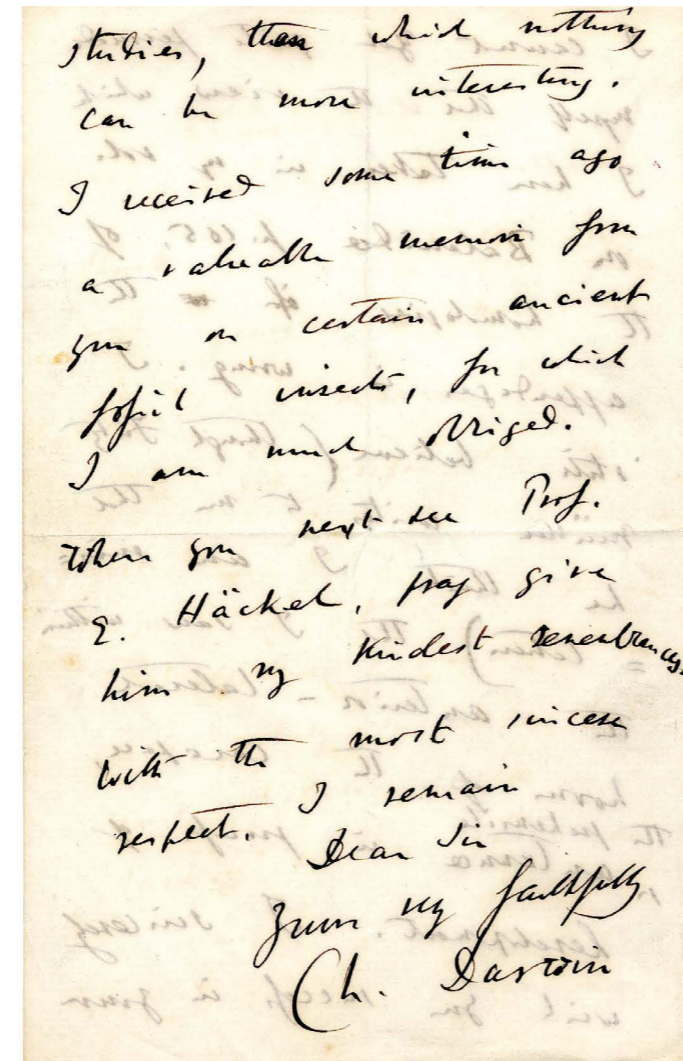 studies, than which nothing
can be more interesting.
I received some time ago
a valuable memoir from
you on certain ancient
fossil insects, for which
I am much obliged.
When you next see Prof.
E. Häckel, pray give
him my kindest remembrances
With the most sincere
respect. I remain
Dear Sir
Yours very faithfully
Ch. Darwin